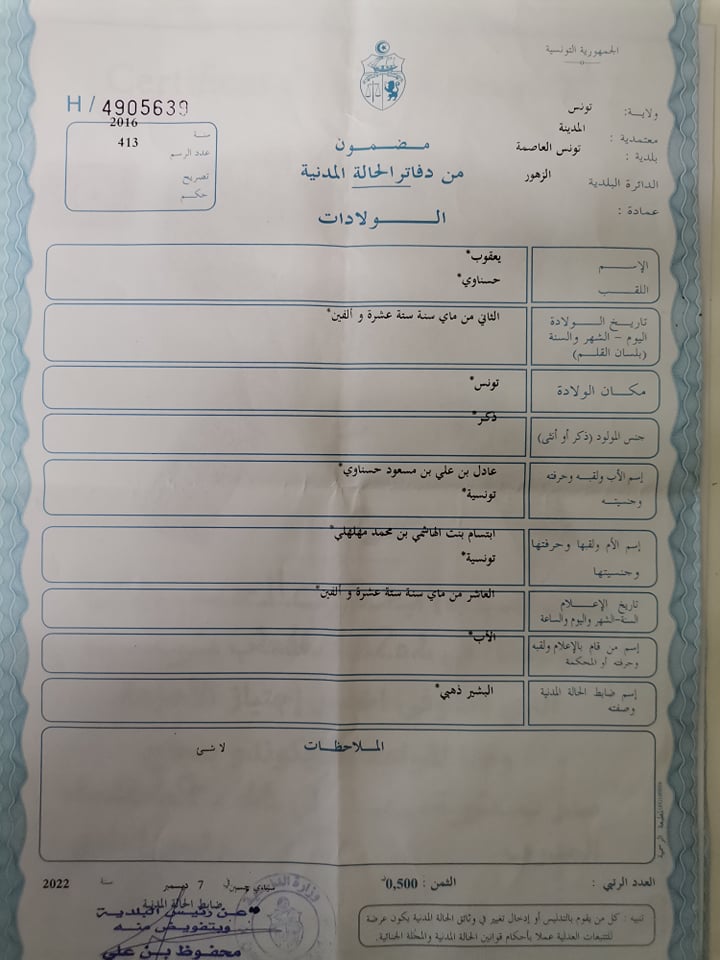 الجمهورية التونسية
ولاية: تونس
معتمدية : المدينة
بلدية : تونس العاصمة
الدائرة البلدية الزهور
عمادة :
H / 4905639
سنة 2016
عدد الرسم 413
تصريح
حكم
مضمون
من دفاتر الحالة المدنية
الولادات
الإسم يعقوب*
اللقب حسناوي*
تاريخ الولادة الثاني من ماي سنة ستة عشرة و ألفين*
اليوم – الشهر والسنة
(بلسان القلم)
مكان الولادة تونس*
جنس المولود (ذكر أو أنثى) ذكر*
إسم الأب ولقبه وحرفته عادل بن علي بن مسعود حسناوي*
وجنسيته تونسية*
إسم الأم ولقبها وحرفتها ابتسام بنت الهاشمي بن محمد مهلهلي*
وجنسيتها تونسية*
تاريخ الإعلام العاشر من ماي سنة ستة عشرة و ألفين*
السنة-الشهر واليوم والساعة
إسم من قام بالإعلام ولقبه الأب*
وحرفته أو المحكمة
إسم ضابط الحالة المدنية البشير ذهبي*
وصفته
الملاحظات
لا شئ
العدد الرتبي : الثمن : 0,500د
في 7 ديسمبر سنة 2022
ضابط الحالة المدنية
عن رئيس البلدية
وبتفويض منه
محفوظ بن علي
تنبيه : كل من يقوم بالتدليس أو إدخال تغيير في وثائق الحالة المدنية يكون عرضة
للتتبعات العدلية عملا بأحكام قوانين الحالة المدنية والمجلة الجنائية.